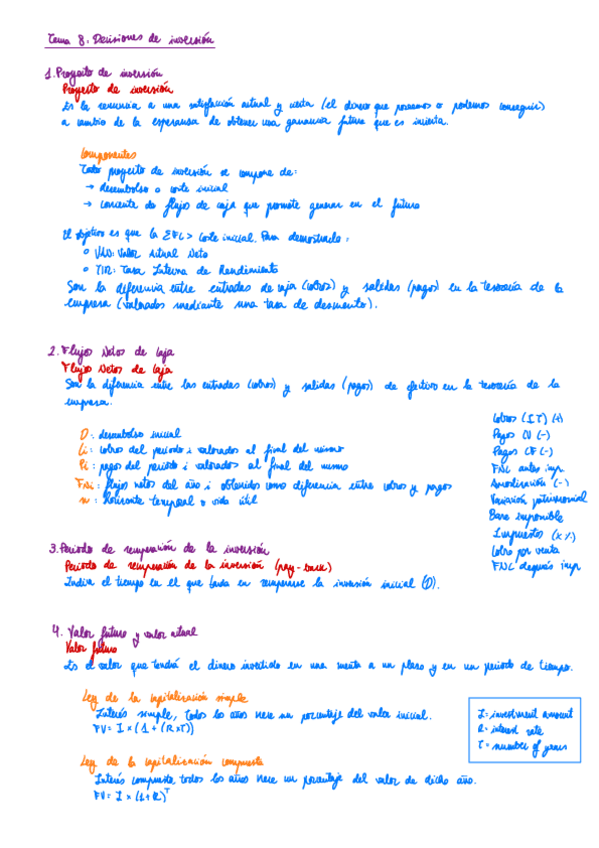 Tema 8. Decisiones de inversión
1. Proyecto de inversión
Proyecto de inversión
Es la renuncia a una satisfacción actual y cierta (el dinero que poseemos o podemos conseguir)
a cambio de la esperanza de obtener una ganancia futura que es incierta.
Componentes
Todo proyecto de inversión se compone de:
→ desembolso o coste inicial
→ corriente de flujos de caja que promete generar en el futuro
El objetivo es que la ΣFC > coste inicial. Para demostrarlo:
○ VAN: Valor Actual Neto
○ TIR: Tasa Interna de Rendimiento
Son la diferencia entre entradas de caja (cobros) y salidas (pagos) en la tesorería de la
empresa (valorados mediante una tasa de descuento).
2. Flujos Netos de Caja
Flujos Netos de Caja
Son la diferencia entre las entradas (cobros) y salidas (pagos) de efectivo en la tesorería de la
empresa.
D: desembolso inicial
Ci: cobros del periodo i valorados al final del mismo
Pi: pagos del periodo i valorados al final del mismo
FNi: flujos netos del año i obtenidos como diferencia entre cobros y pagos
n: Horizonte temporal o vida útil
Cobros (IT) (+)
Pagos CV (-)
Pagos CF (-)
FNC antes imp.
Amortización (-)
Variación patrimonial
Base imponible
Impuestos (x%)
Cobro por venta
FNC después imp
3. Periodo de recuperación de la inversión
Periodo de recuperación de la inversión (pay-back)
Indica el tiempo en el que tarda en recuperarse la inversión inicial (D).
4. Valor futuro y valor actual
Valor futuro
Es el valor que tendrá el dinero invertido en una cuenta a un plazo y en un periodo de tiempo.
Ley de la capitalización simple
Interés simple, todos los años crece un porcentaje del valor inicial.
FV = I x (1 + (R x T))
Ley de la capitalización compuesta
Interés compuesto, todos los años crece un porcentaje del valor de dicho año.
FV = I x (1+R)^T
I: investment amount
R: interest rate
T: number of years